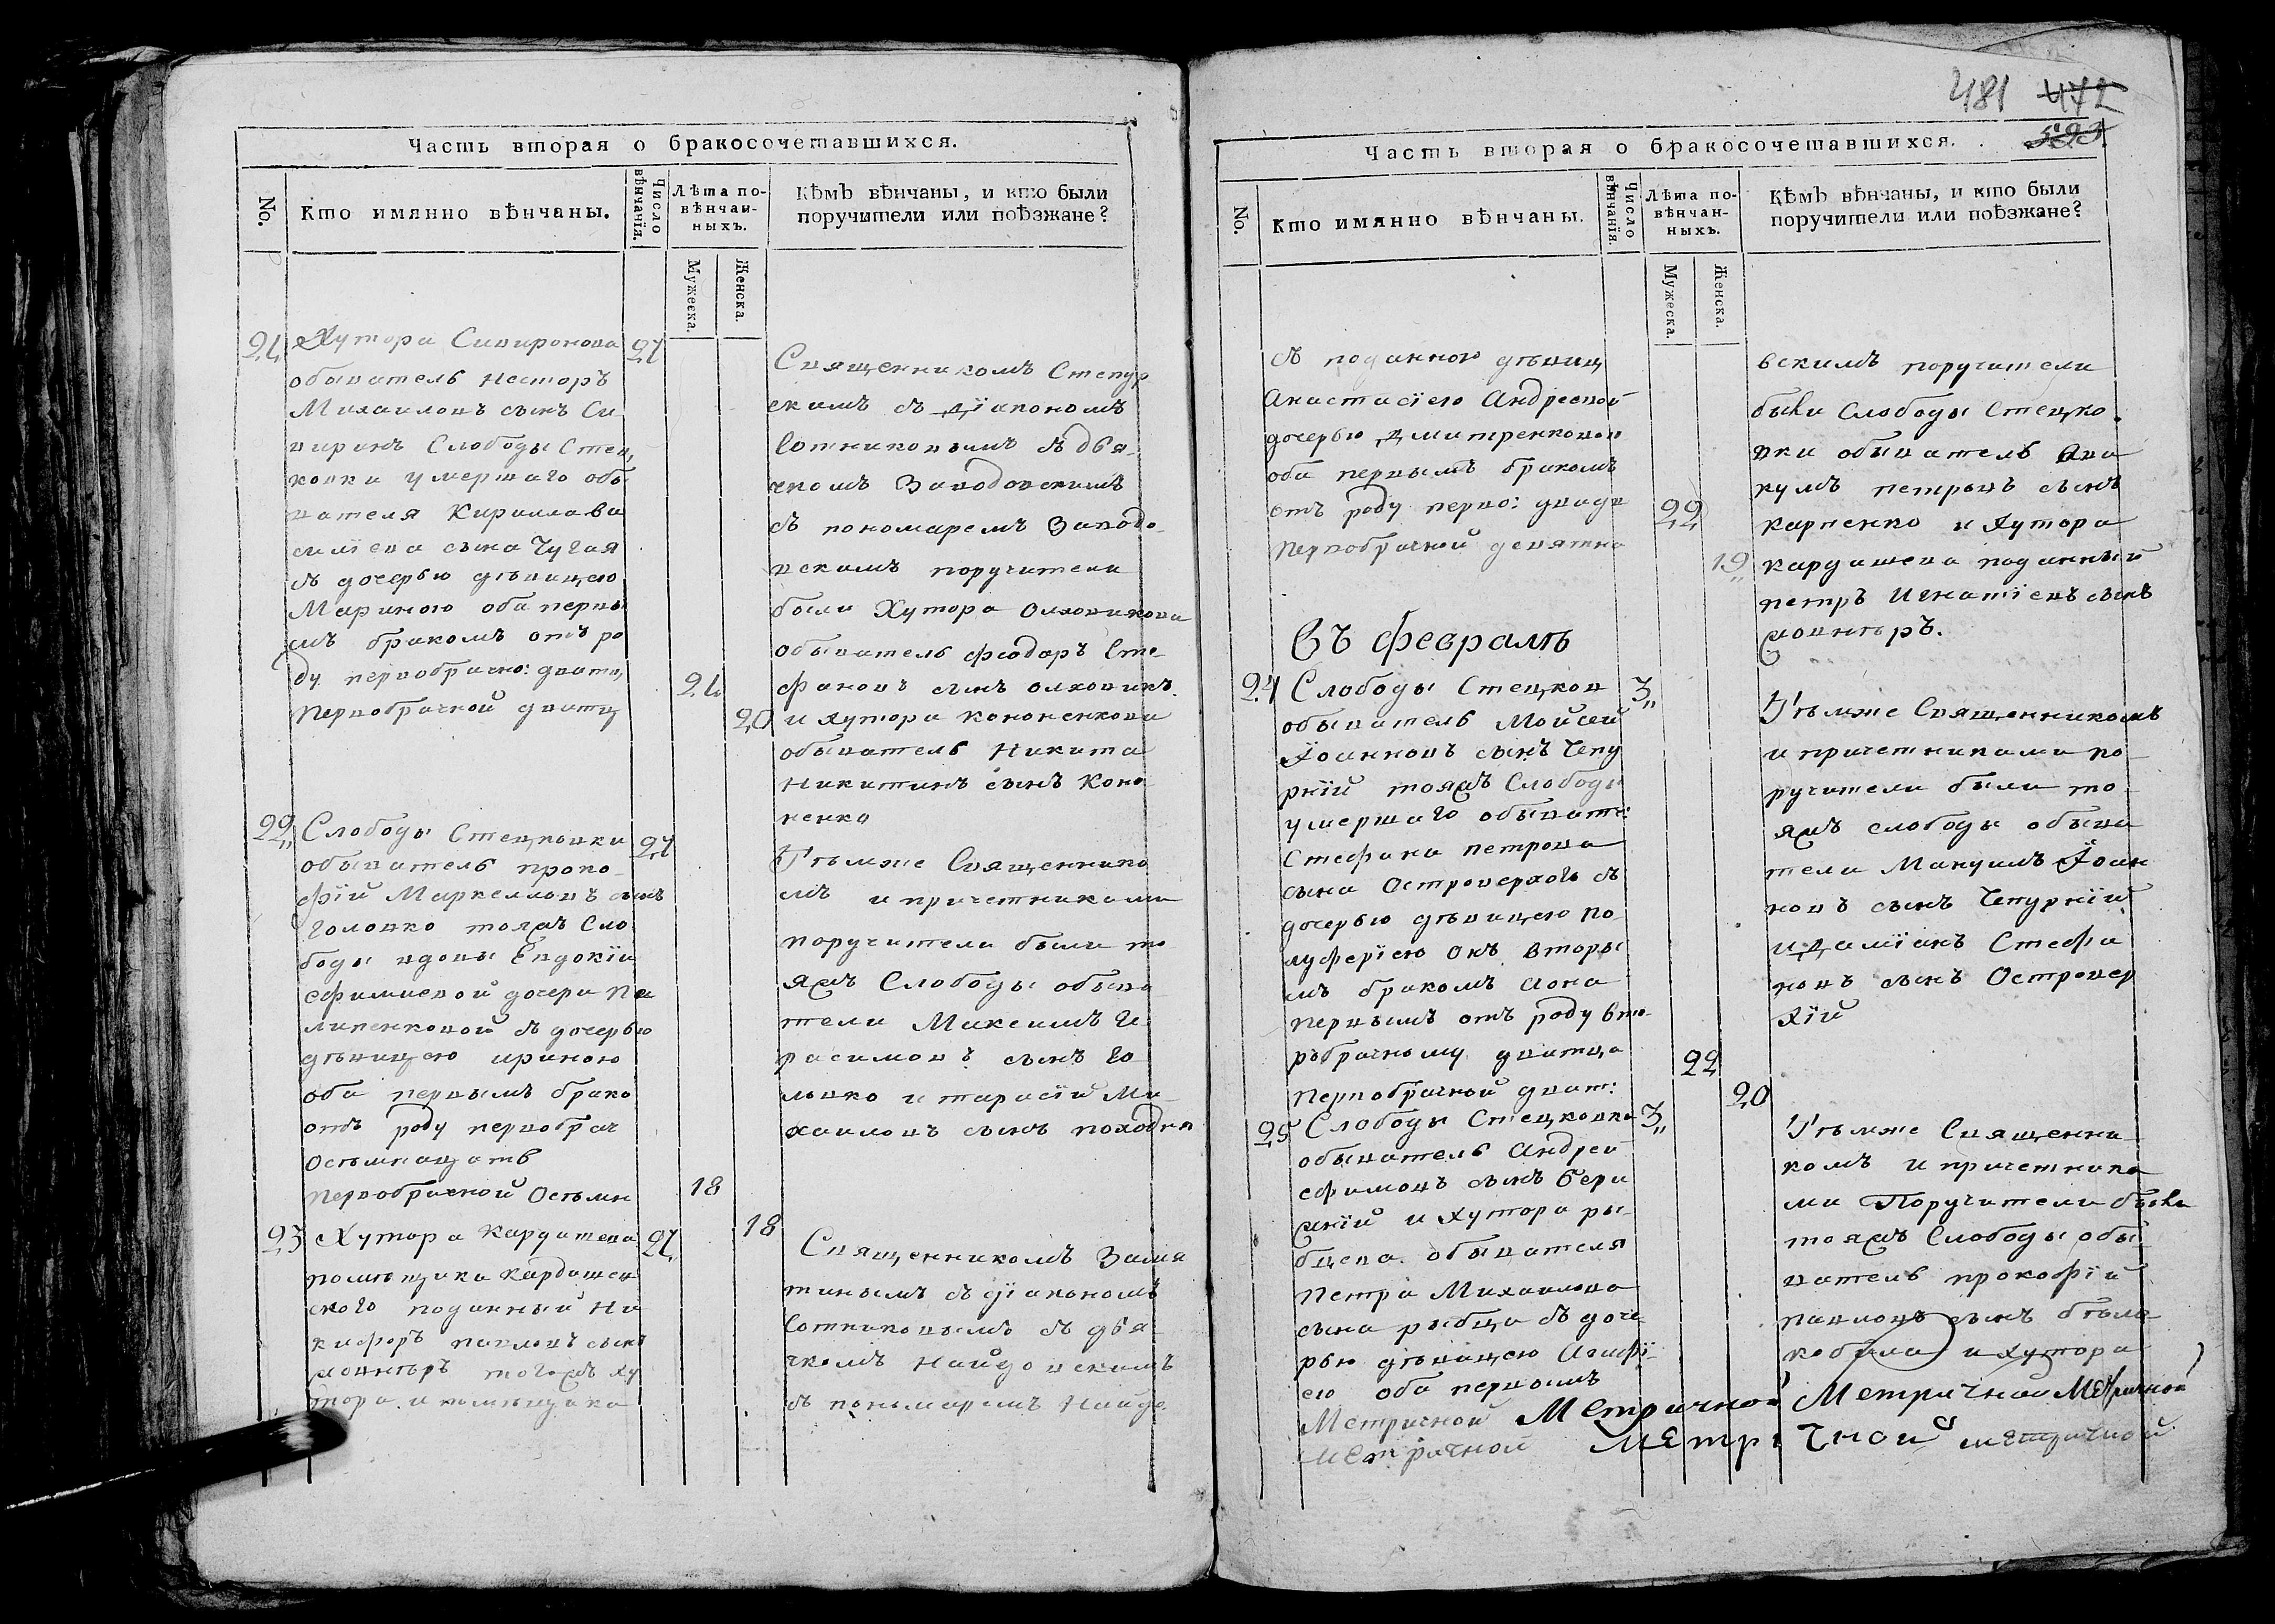 Часть вторая о бракосочетавшихся.
No.
Кто имянно вѣнчаны.
Число вѣнчанія.
Лѣта повѣнчанныхъ.
Мужеска.
Женска.
Кѣмъ вѣнчаны, и кто были
поручители или поѣзжане?
21 Хутора Сивиронова 27
обыватель Несторъ
Михаиловъ сынъ Си
виринъ Слободы Стец
ковки умершаго обы
вателя Кирилла Ва
силіева сына Чугая
съ дочерью дѣвицею
Мариною оба первы
мъ бракомъ отъ ро
ду первобрачно: дватц 21
первобрачной дватц 20
Священникомъ Степур
скимъ съ діакономъ
Сотниковымъ съ дья
чкомъ Заводовскимъ
съ пономаремъ Заводо
вскимъ поручители
были Хутора Олховикова
обыватель Феодоръ Сте
фановъ сынъ Олховикъ
и хутора Кононенкова
обыватель Никита
Никитинъ сынъ Коно
ненко
22 Слободы Стецковки 27
обыватель Проко
фій Маркелловъ сынъ
Головко тояжъ Сло
боды вдовы Евдокіи
Ефимиевой дочери Пи
липенковой съ дочерью
дѣвицею Ириною
оба первымъ брако
отъ роду первобрач
осьмнацать
первобрачной осьмн 18
18
Тѣмже Священнико
мъ и причетниками
поручители были то
яжъ Слободы обыва
тели Максимъ Ге
расимовъ сынъ Го
ловко и Тарасій Ми
хаиловъ сынъ Походня
23 Хутора Кардашева 27
помѣщика Кардашев
ского поданный Ни
кифоръ Павловъ сынъ
Жовнѣръ тогожъ ху
тора и помѣщика
Священникомъ Замя
тинымъ съ діакономъ
Сотниковымъ съ дья
чкомъ Найдовскимъ
съ пономаремъ Найдо
481 472
523
Часть вторая о бракосочетавшихся.
No.
Кто имянно вѣнчаны.
Число вѣнчанія.
Лѣта повѣнчанныхъ.
Мужеска.
Женска.
Кѣмъ вѣнчаны, и кто были
поручители или поѣзжане?
съ поданною дѣвиц
Анастасіею Андреевой
дочерью Дмитренковой
оба первымъ бракомъ
отъ роду перво: двадц 22
первобрачной девятна 19
вскимъ поручители
были Слободы Стецко
вки обыватель Ава
кумъ Петровъ сынъ
Карпенко и Хутора
Кардашева поданный
Петръ Игнатіевъ сынъ
Жовнѣръ.
Въ февралѣ
24 Слободы Стецков 3
обыватель Мойсей
Іоанновъ сынъ Чепу
рній тояжъ Слободы
умершаго обывате:
Стефана Петрова
сына Островерхого съ
дочерью дѣвицею По
луферіею онъ вторы
мъ бракомъ а она
первымъ отъ роду вто
робрачному дватца 22
первобрачной дват: 20
Тѣмже Священникомъ
и причетниками по
ручители были то
яжъ слободы обыва
тели Мануилъ Іоан
новъ сынъ Чепурній
и Даміанъ Стефа
новъ сынъ Островер
хій
25 Слободы Стецковки 3
обыватель Андрей
Ефимовъ сынъ Бери
жній и Хутора Ры
бцева обывателя
Петра Михаилова
сына Рыбца съ доче
рью дѣвицею Агафі
ею оба первымъ
Тѣмже Священни
комъ и причетника
ми Поручители были
тояжъ Слободы обы
ватель Прокофій
Павловъ сынъ Бѣло
кобила и хутора
Метричной Метричной Метричной Метричной
метричной метричной метричной